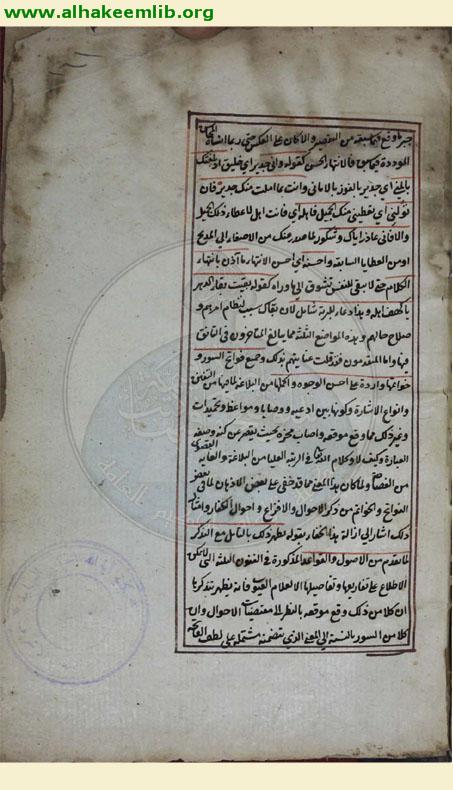 www.alhakeemlib.org
جبر ما وقع فيما سبقه من التقصير والا كان على العكس حتى ربما انساه المحاسن
الموردة فيما سبق فالانتهاء الحسن كقوله واني جدير اي خليق اذ بلغتك
بالمنى اي جدير بالفوز بالاماني وانت بما املت منك جدير فان
تولني اي تعطيني منك الجميل فاهله اي فانت اهل لاعطاء ذلك الجميل
والا فاني عاذر اياك وشكور لما صدر منك من الاصغاء الى المديح
او من العطايا السابقة واحسنه اي احسن الانتهاء ما آذن بانتهاء
الكلام حتى لا يبقى للنفس تشوق الى ما وراه كقوله بقيت بقاء الدهر
يا كهف اهله وهذا دعاء للبرية شامل لان بقاك سبب لنظام امرهم و
صلاح حالهم وهذه المواضع الثلثة مما يبالغ المتاخرون في التانق
فيها واما المتقدمون فقد قلت عنايتهم بذلك وجميع فواتح السور و
خواتمها واردة على احسن الوجوه واكملها من البلاغة لما فيها من التفنن
وانواع الاشارة وكونها بين ادعيه ووصايا ومواعظ وتحميدات
وغير ذلك مما وقع موقعه واصاب محزه بحيث يقصر عن كنه وصفه
العبارة وكيف لا وكلام الله في الرتبة العليا من البلاغة والغاية القصوى
من الفصاحة ولما كان هذا المعنى مما قد خفي على بعض الاذهان لما في بعض
الفواتح والخواتم من ذكر الاحوال والافزاع و احوال الكفار وامثال
ذلك اشار الى ازالة هذا الخفاء بقوله يظهر ذلك بالتامل مع التذكر
لما تقدم من الاصول والقواعد المذكورة في الفنون الثلثة التي لا يمكن
الاطلاع على تفاريعها وتفاصيلها الا لعلام الغيوب فانه يظهر بتذكرها
ان كلا من ذلك وقع موقعه بالنظر الى مقتضيات الاحوال وان
كلا من السور بالنسبة الى المعنى الذي يتضمنه مشتملة على لطف الفاتحة